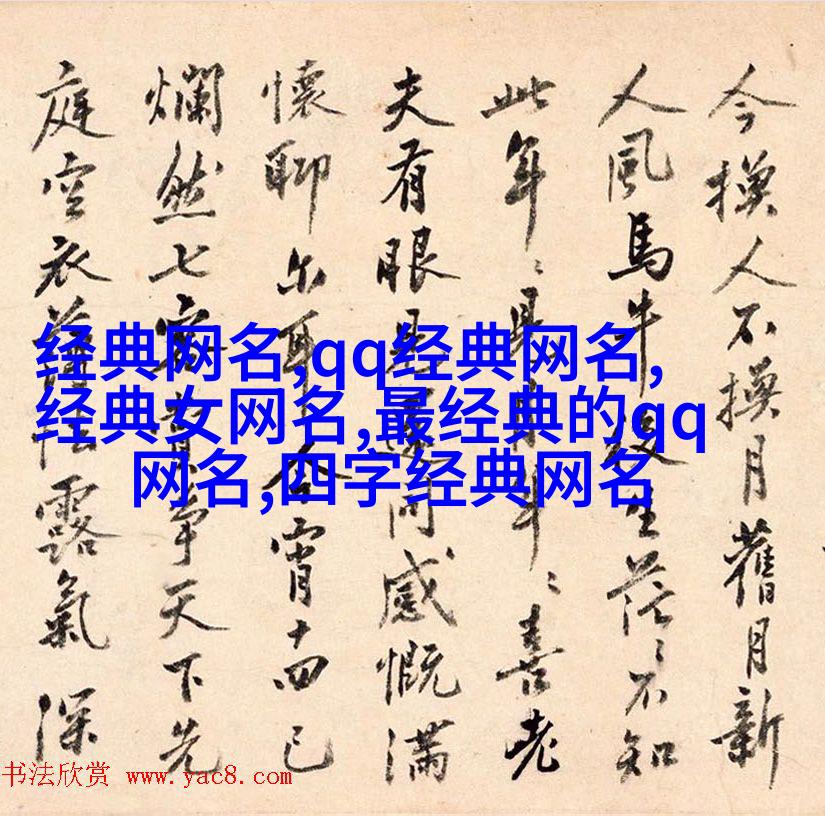 今換人不換月舊月新
人風馬牛後生茫〻不知
此年〻見年〻喜老
夫有眼感慨滿
懷聊尔耳今宵十四已
爛然七天下先
庭空衣薄怯露氣深
经典网名,qq经典网名,
经典女网名,最经典的qq
网名,四字经典网名
书法欣赏 www.yac8.com